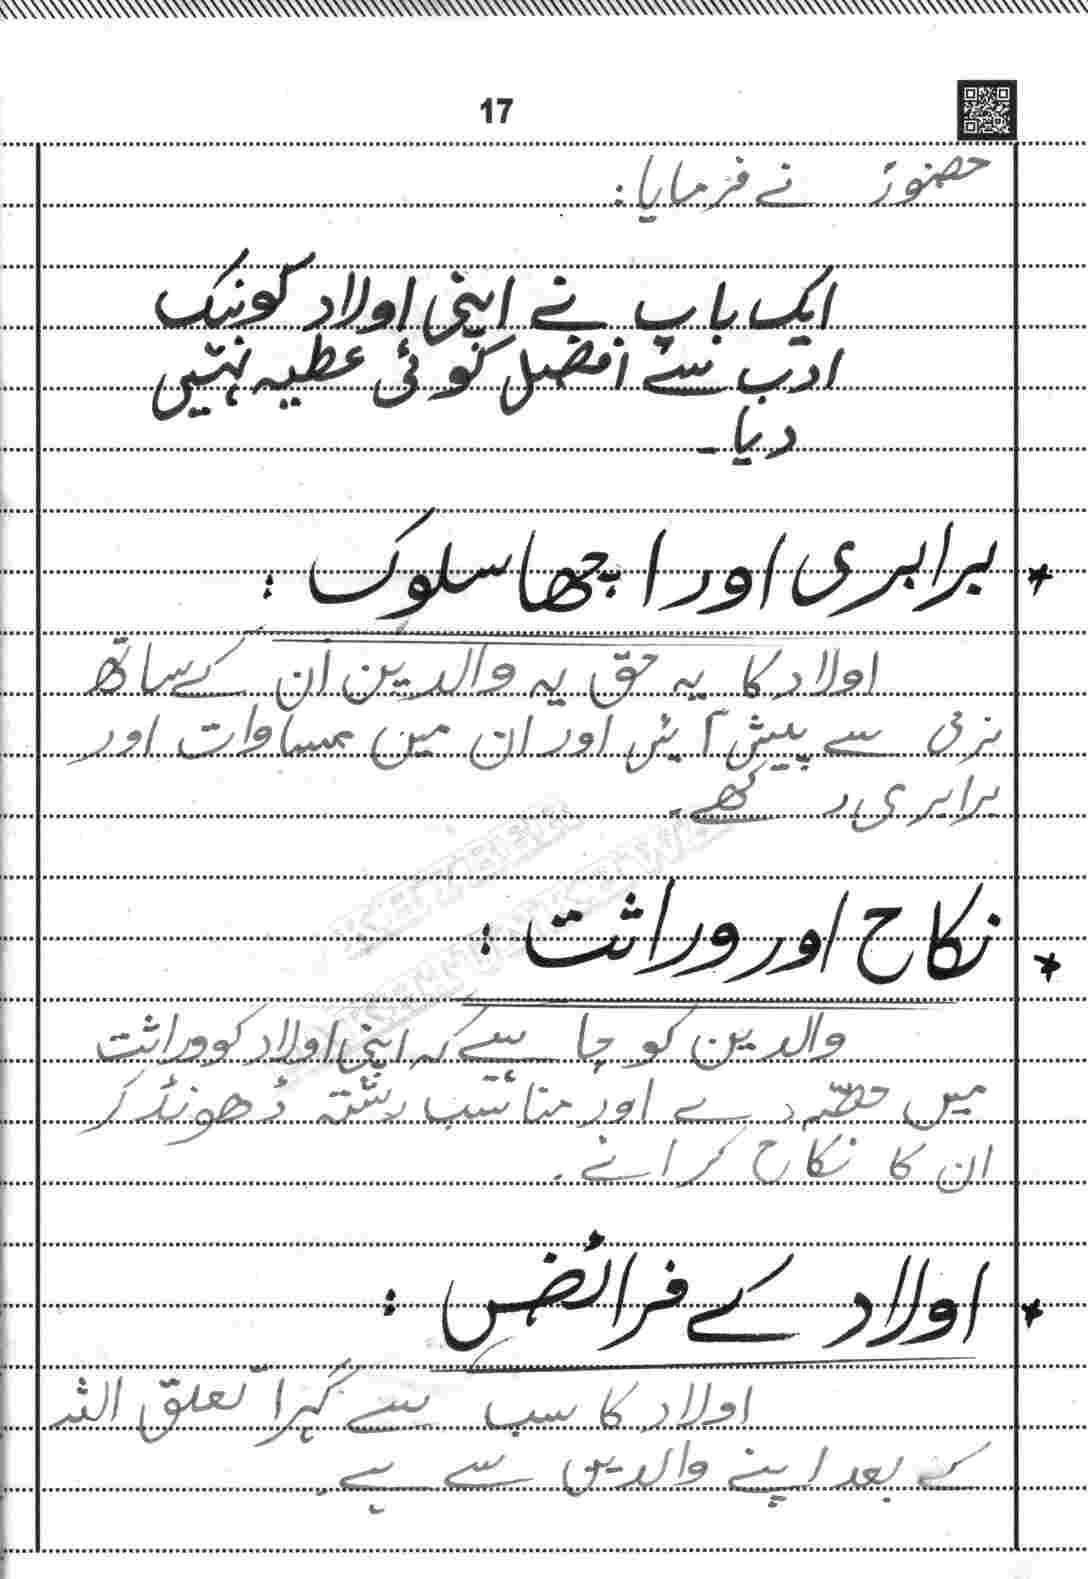 17
حضورؐ نے فرمایا:
ایک باپ نے اپنی اولاد کو نیک
ادب سے افضل کوئی عطیہ نہیں
دیا۔
* برابری اور اچھا سلوک :
اولاد کا یہ حق یہ والدین ان کے ساتھ
نرمی سے پیش آئیں اور ان میں مساوات اور
برابری رکھے۔
* نکاح اور وراثت :
والدین کو چاہیے کہ اپنی اولاد کو وراثت
میں حصّہ دے اور مناسب رشتہ ڈھونڈ کر
ان کا نکاح کرائے۔
* اولاد کے فرائض :
اولاد کا سب سے گہرا تعلق اللہ
کے بعد اپنے والدین سے ہے۔
KHYBER
PAKHTUNKHWA